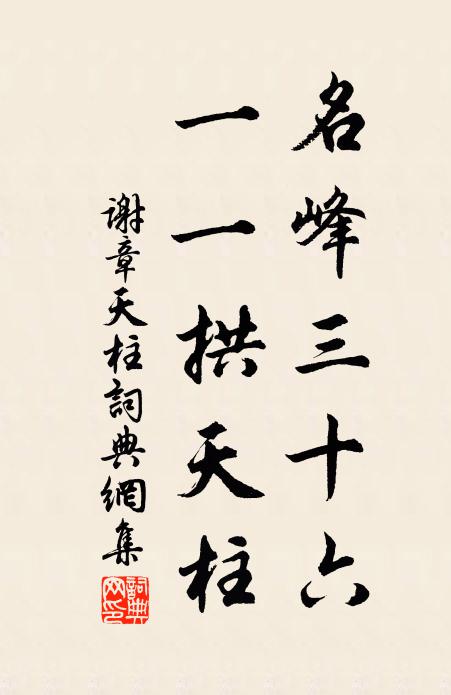 名峰三十六
一一拱天柱
謝章天柱詞典網集
詞典网印